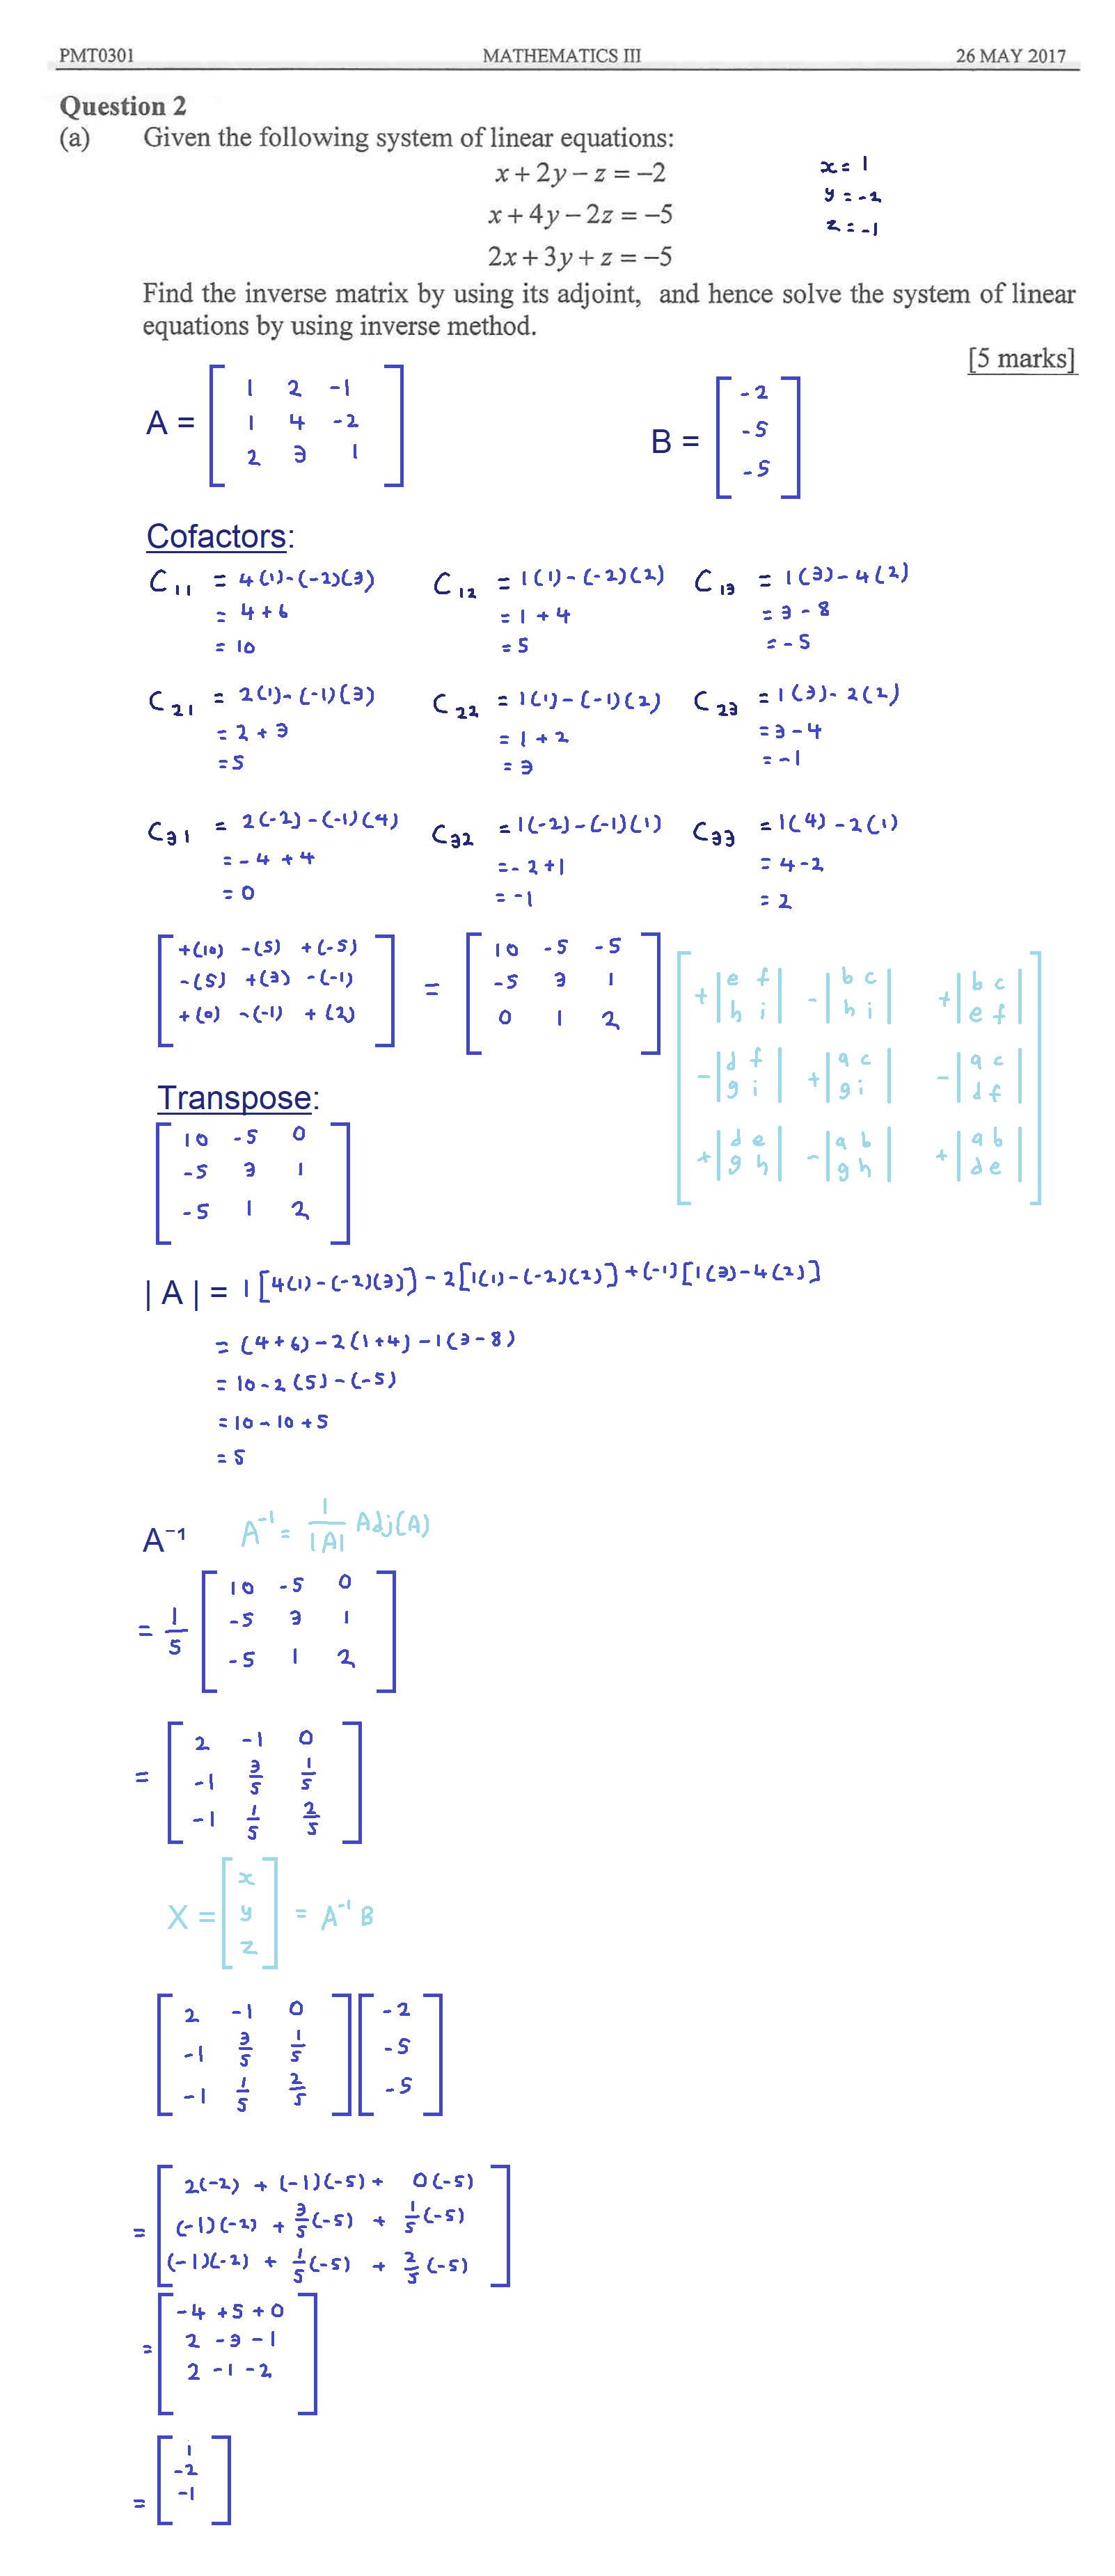 PMT0301 MATHEMATICS III 26 MAY 2017
Question 2
(a) Given the following system of linear equations:
x + 2y − z = −2
x = 1
x + 4y − 2z = −5
y = -2
2x + 3y + z = −5
z = -1
Find the inverse matrix by using its adjoint, and hence solve the system of linear
equations by using inverse method.
[5 marks]
A = [ 1 2 -1
1 4 -2
2 3 1 ]
B = [ -2
-5
-5 ]
Cofactors:
C11 = 4(1)-(-2)(3) C12 = 1(1)-(-2)(2) C13 = 1(3)-4(2)
= 4+6 = 1+4 = 3-8
= 10 = 5 = -5
C21 = 2(1)-(-1)(3) C22 = 1(1)-(-1)(2) C23 = 1(3)-2(2)
= 2+3 = 1+2 = 3-4
= 5 = 3 = -1
C31 = 2(-2)-(-1)(4) C32 = 1(-2)-(-1)(1) C33 = 1(4)-2(1)
= -4+4 = -2+1 = 4-2
= 0 = -1 = 2
[ +(10) -(5) +(-5)
-(5) +(3) -(-1)
+(0) -(-1) +(2) ]
= [ 10 -5 -5
-5 3 1
0 1 2 ]
[ +|e f| -|b c| +|b c|
|h i| |h i| |e f|
-|d f| +|a c| -|a c|
|g i| |g i| |d f|
+|d e| -|a b| +|a b|
|g h| |g h| |d e| ]
Transpose:
[ 10 -5 0
-5 3 1
-5 1 2 ]
| A | = 1[4(1)-(-2)(3)]-2[1(1)-(-2)(2)]+(-1)[1(3)-4(2)]
= (4+6)-2(1+4)-1(3-8)
= 10-2(5)-(-5)
= 10-10+5
= 5
A⁻¹ A⁻¹ = 1/|A| Adj(A)
= 1/5 [ 10 -5 0
-5 3 1
-5 1 2 ]
= [ 2 -1 0
-1 3/5 1/5
-1 1/5 2/5 ]
X = [ x
y
z ] = A⁻¹ B
[ 2 -1 0
-1 3/5 1/5
-1 1/5 2/5 ]
[ -2
-5
-5 ]
= [ 2(-2) + (-1)(-5) + 0(-5)
(-1)(-2) + 3/5(-5) + 1/5(-5)
(-1)(-2) + 1/5(-5) + 2/5(-5) ]
= [ -4+5+0
2-3-1
2-1-2 ]
= [ 1
-2
-1 ]